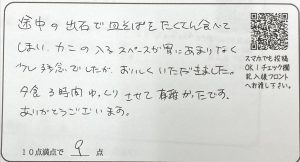 途中の出石で皿そばをたくさん食べて
しまい、カニの入るスペースが胃にあまりなく
少し残念でしたが、おいしくいただきました。
夕食3時間ゆっくりさせて有難かったです。
ありがとうございます。
10点満点で 9 点
スマホでも投稿
OK！チェック欄
記入後フロント
へお渡し下さい。